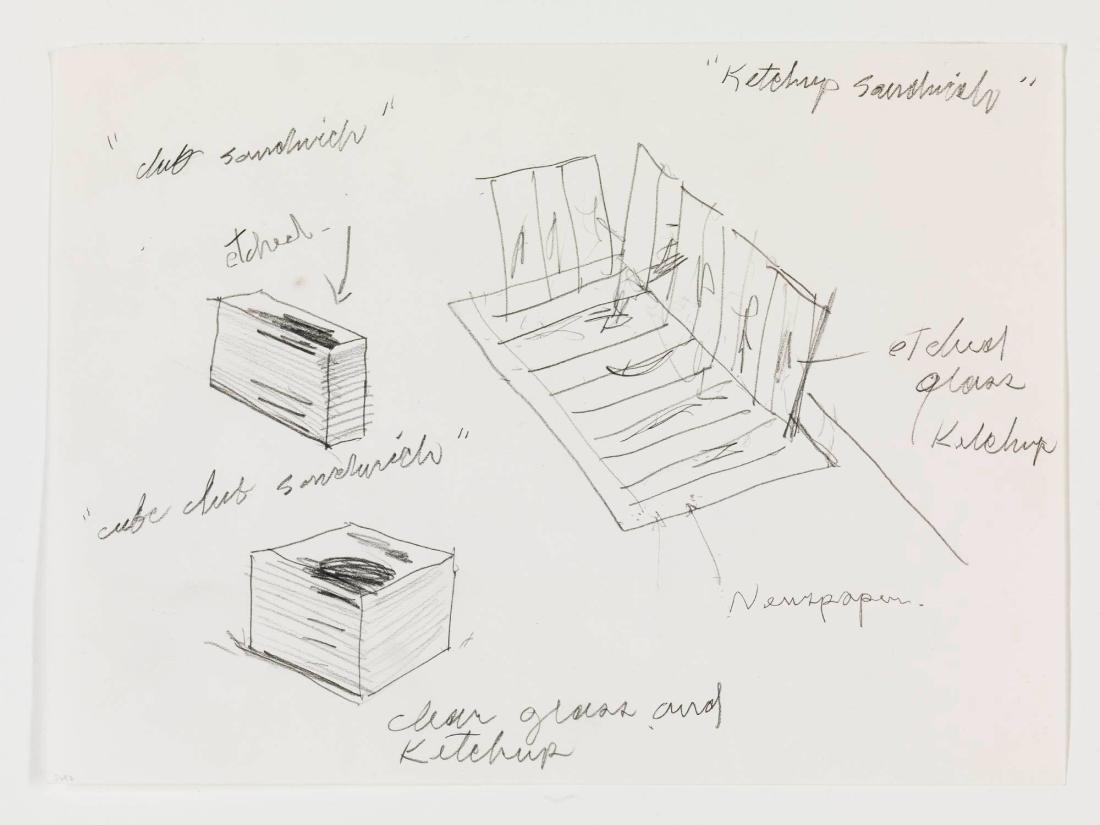 "Ketchup sandwich"
"club sandwich"
etched -
etched
glass
Ketchup
"cube club sandwich"
Newspaper.
clear glass and
Ketchup